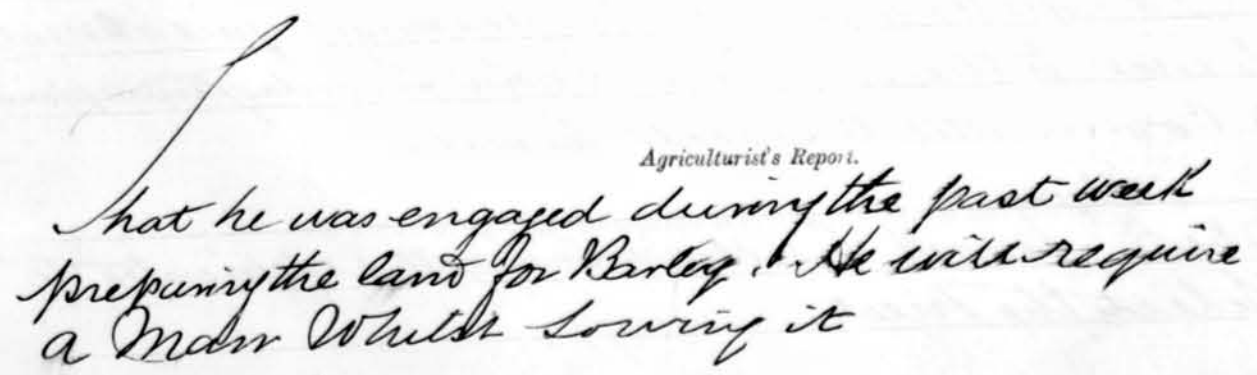 Agriculturist's Report.
That he was engaged during the past week
preparing the land for Barley. He will require
a Man Whilst Sowing it